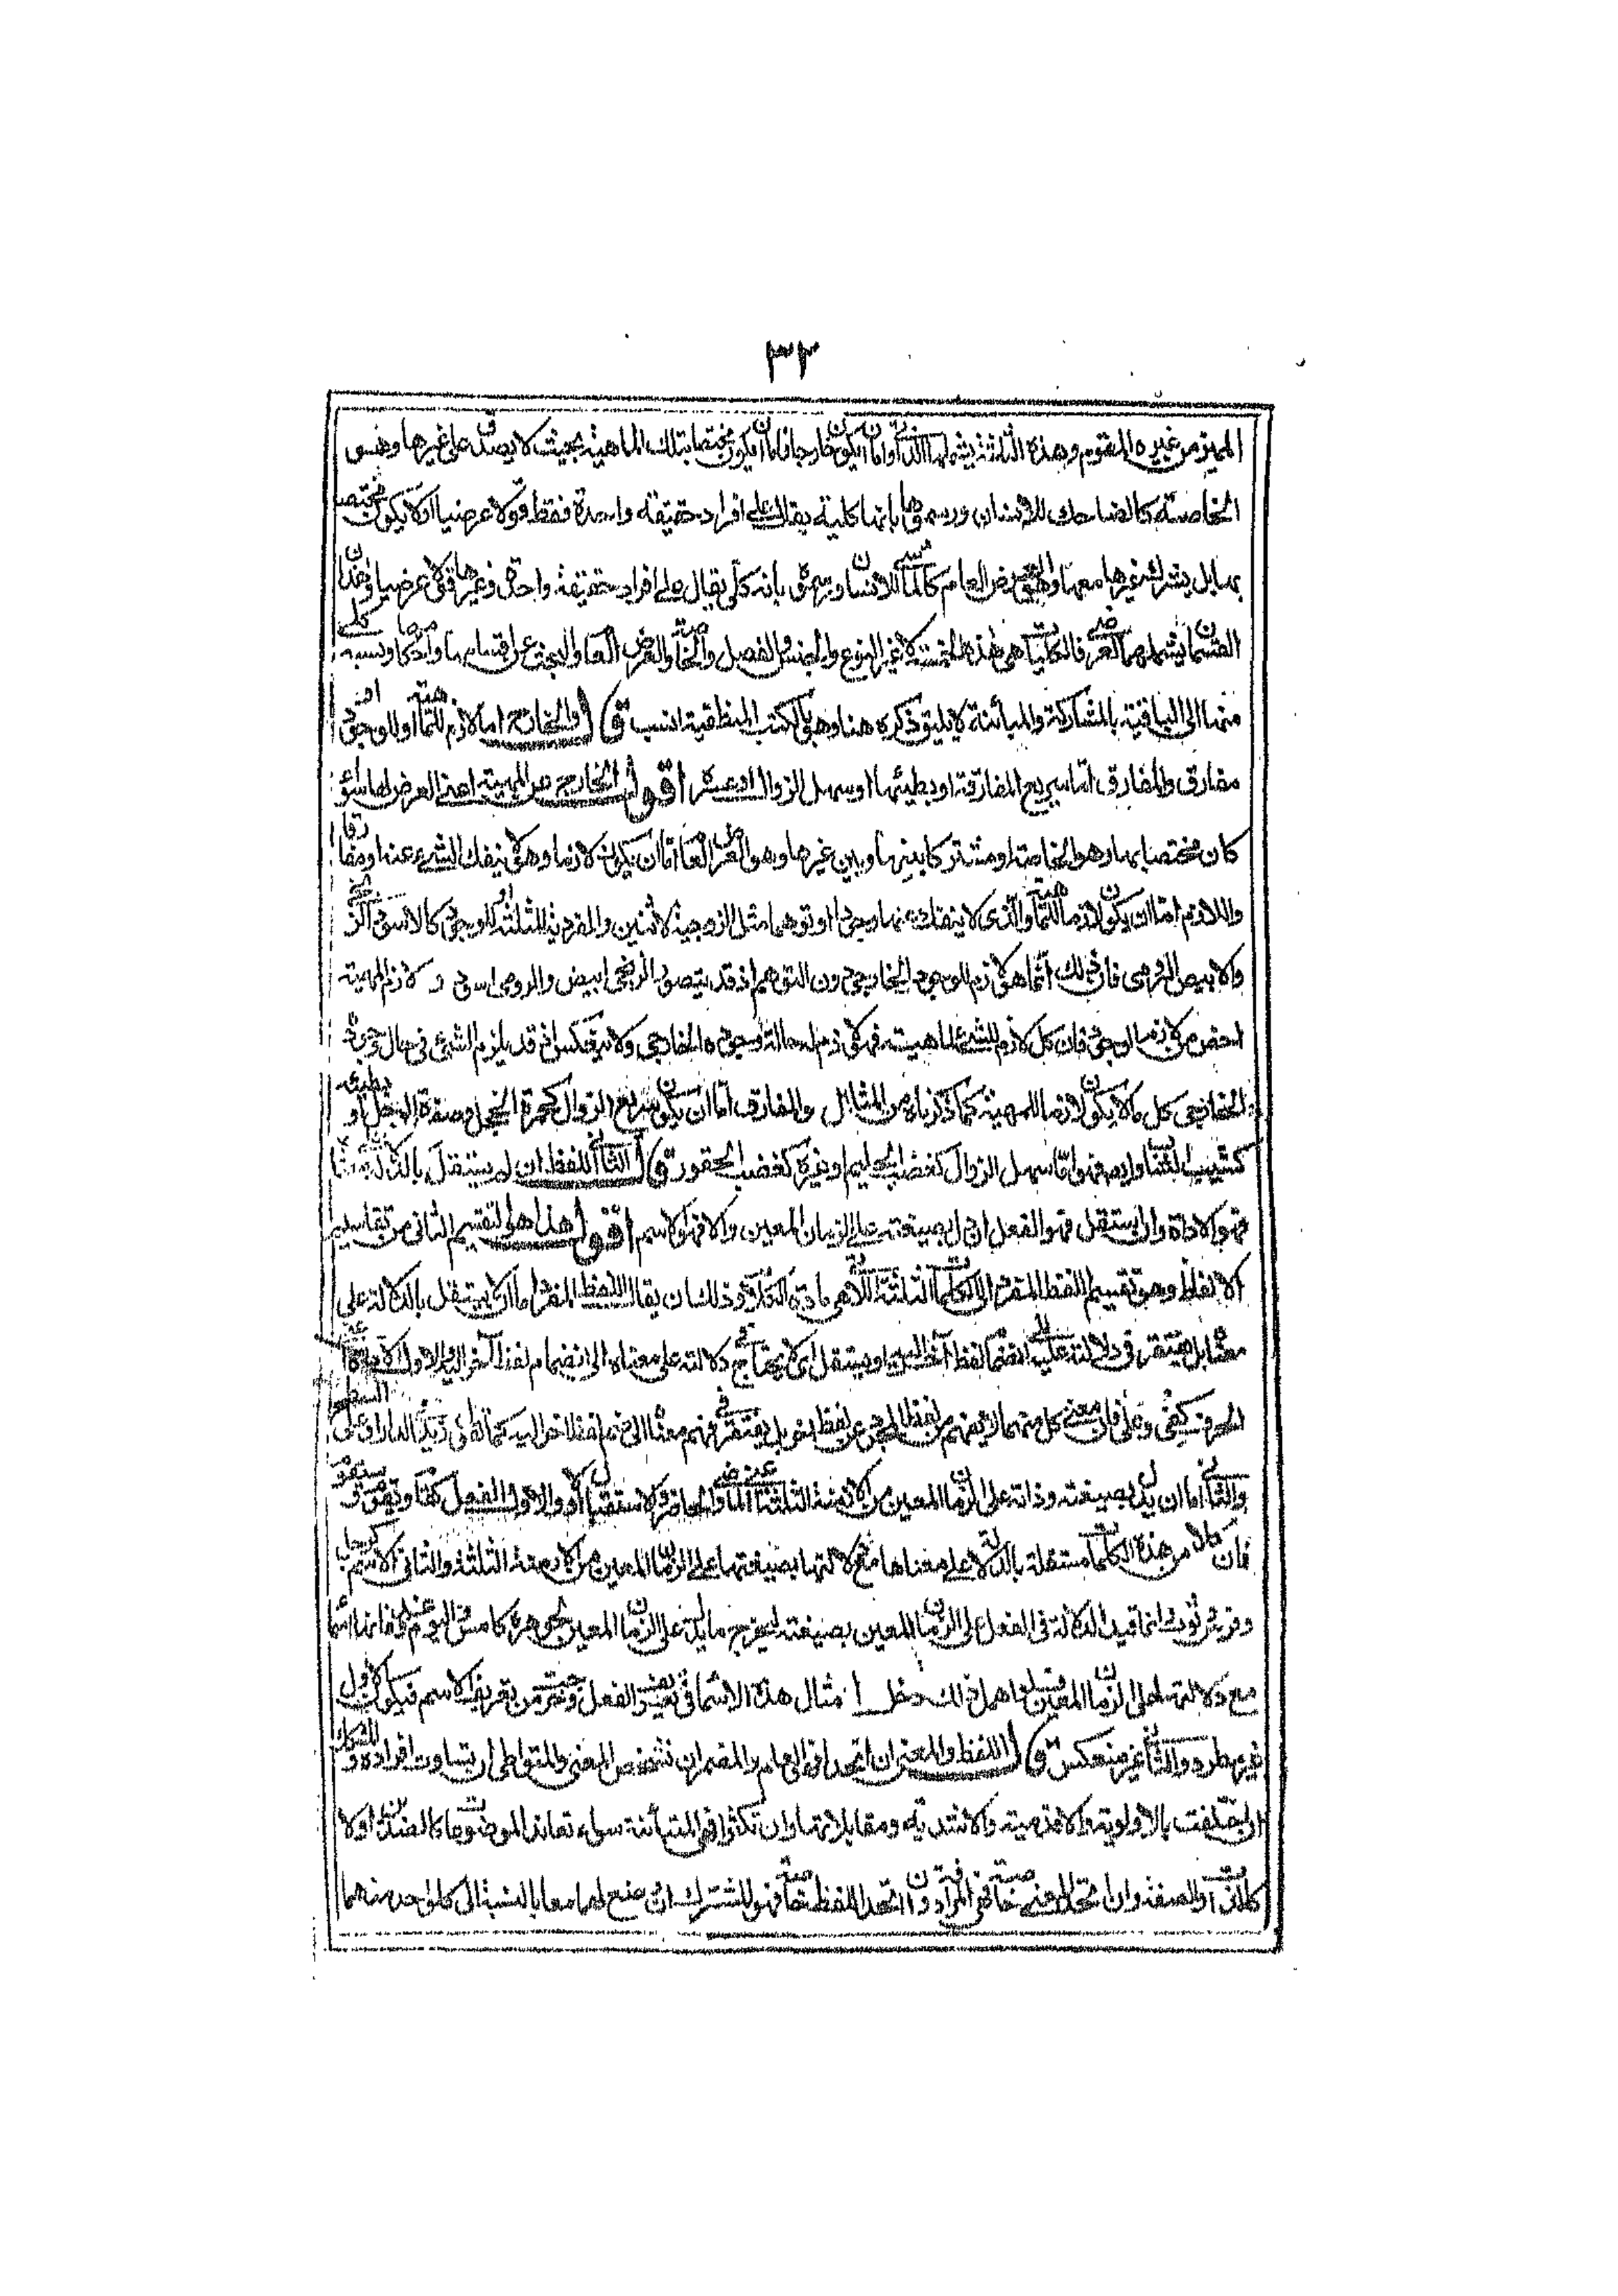 ٣٣
المميز من غيره المقوم وهذه الثلثة يشملها الذاتي واما ان يكون خارجا فاما ان يكون مختصا بتلك الماهية بحيث لا يصدق على غيرها وهو
الخاصة كالضاحك للانسان ورسموها بانها كلية يقال على افراد حقيقة واحدة فقط قولا عرضيا او لا يكون مختصا
بها بل يشترك غيرها معها وهو العرض العام كالماشي للانسان ورسموه بانه كلي يقال على افراد حقيقة واحدة وغيرها قولا عرضيا وهذان
القسمان يشملهما العرضي فالكليات هي هذه الخمسة لا غير النوع والجنس والفصل والخاصة والعرض العام والبحث عن اقسامها واحكامها ونسبة كل
منها الى الباقية بالمشاركة والمباينة لا يليق ذكره هنا وهو بالكتب المنطقية انسب ق والخارج اما لازم للماهية او للوجود او
مفارق والمفارق اما سريع المفارقة او بطيئها او سهل الزوال او عسره اقول الخارج عن المهية اعني العرض لها سواء
كان مختصا بها وهو الخاصة او مشتركا بينها وبين غيرها وهو العرض العام اما ان يكون لازما وهو لا ينفك الشيء عنه او مفارقا
واللازم اما ان يكون لازما للماهية والذي لا ينفك عنها وجودا وتوهما مثل الزوجية لاثنين والفردية للثلثة او للوجود كالاسود الزنجي
والابيض الرومي فان ذلك انما هو لازم للوجود الخارجي دون التوهم اذ قد يتصور الزنجي ابيض والرومي اسود و لازم المهية
اخص من لازم الوجود فان كل لازم للشيء لماهيته فهو لازم له حالة وجوده الخارجي ولا ينعكس اذ قد يلزم الشيء في حال وجوده
الخارجي كل ما لا يكون لازما للمهية كما ذكرناه من المثال والمفارق اما ان يكون سريع الزوال كحمرة الخجل وصفرة الوجل او بطيئه
كالشيب والشباب وايضا فهو اما سهل الزوال كغضب الحليم او غيره كغضب الحقود ق الثاني اللفظ ان لم يستقل بالدلالة
فهو الاداة وان استقل فهو الفعل ان دل بصيغته على الزمان المعين والا فهو الاسم اقول هذا هو التقسيم الثاني من تقاسيم
الالفاظ وهو تقسيم اللفظ المفرد الى الكلمات الثلثة التي هي مادة الكلام وذلك ان يقال اللفظ المفرد اما ان لا يستقل بالدلالة على
معناه بل يفتقر في دلالته عليه الى انضمام لفظ آخر اليه او يستقل اي لا يحتاج في دلالته على معناه الى انضمام لفظ آخر اليه والاول الاداة
الحرف كفي وعلى فان معنى كل منهما لا يفهم من لفظه المجرد عن لفظ اخر بل يفتقر في فهم معناه الى ضم لفظ اخر اليه كما تقول زيد في الدار او على السطح
والثاني اما ان يدل بصيغته وذاته على الزمان المعين من الازمنة الثلثة اعني الماضي والحاضر والاستقبال او لا والاول الفعل كقام ويقوم وسيقوم
فان كلا من هذه الكلمات مستقلة بالدلالة على معناها مع دلالتها بصيغتها على الزمان المعين من الازمنة الثلثة والثاني الاسم كرجل
وفرس وثوب انما قيد الدلالة في الفعل على الزمان المعين بصيغته ليخرج ما يدل على الزمان المعين بجوهره كامس واليوم وغد فانها اسماء
مع دلالتها على الزمان المعين فلو اهمل ذلك دخل امثال هذه الاسماء في تعريف الفعل وخرجت من تعريف الاسم فيكون الاول
غير مطرد والثاني غير منعكس ق اللفظ والمعنى ان اتحدا فهو العلم والمضمر ان تشخص المعنى والمتواطي ان تساوت افراده والمشكك
ان اختلفت بالاولوية والاقدمية والاشدية ومقابلاتها وان تكثرا فهي المتباينة سواء تعاند الموضوعات كالضدين او لا
كالذات والصفة وان اتحد المعنى خاصة فهي المرادفة وان اتحد اللفظ خاصة فهو المشترك ان وضع لهما معا بالنسبة الى كل واحد منهما